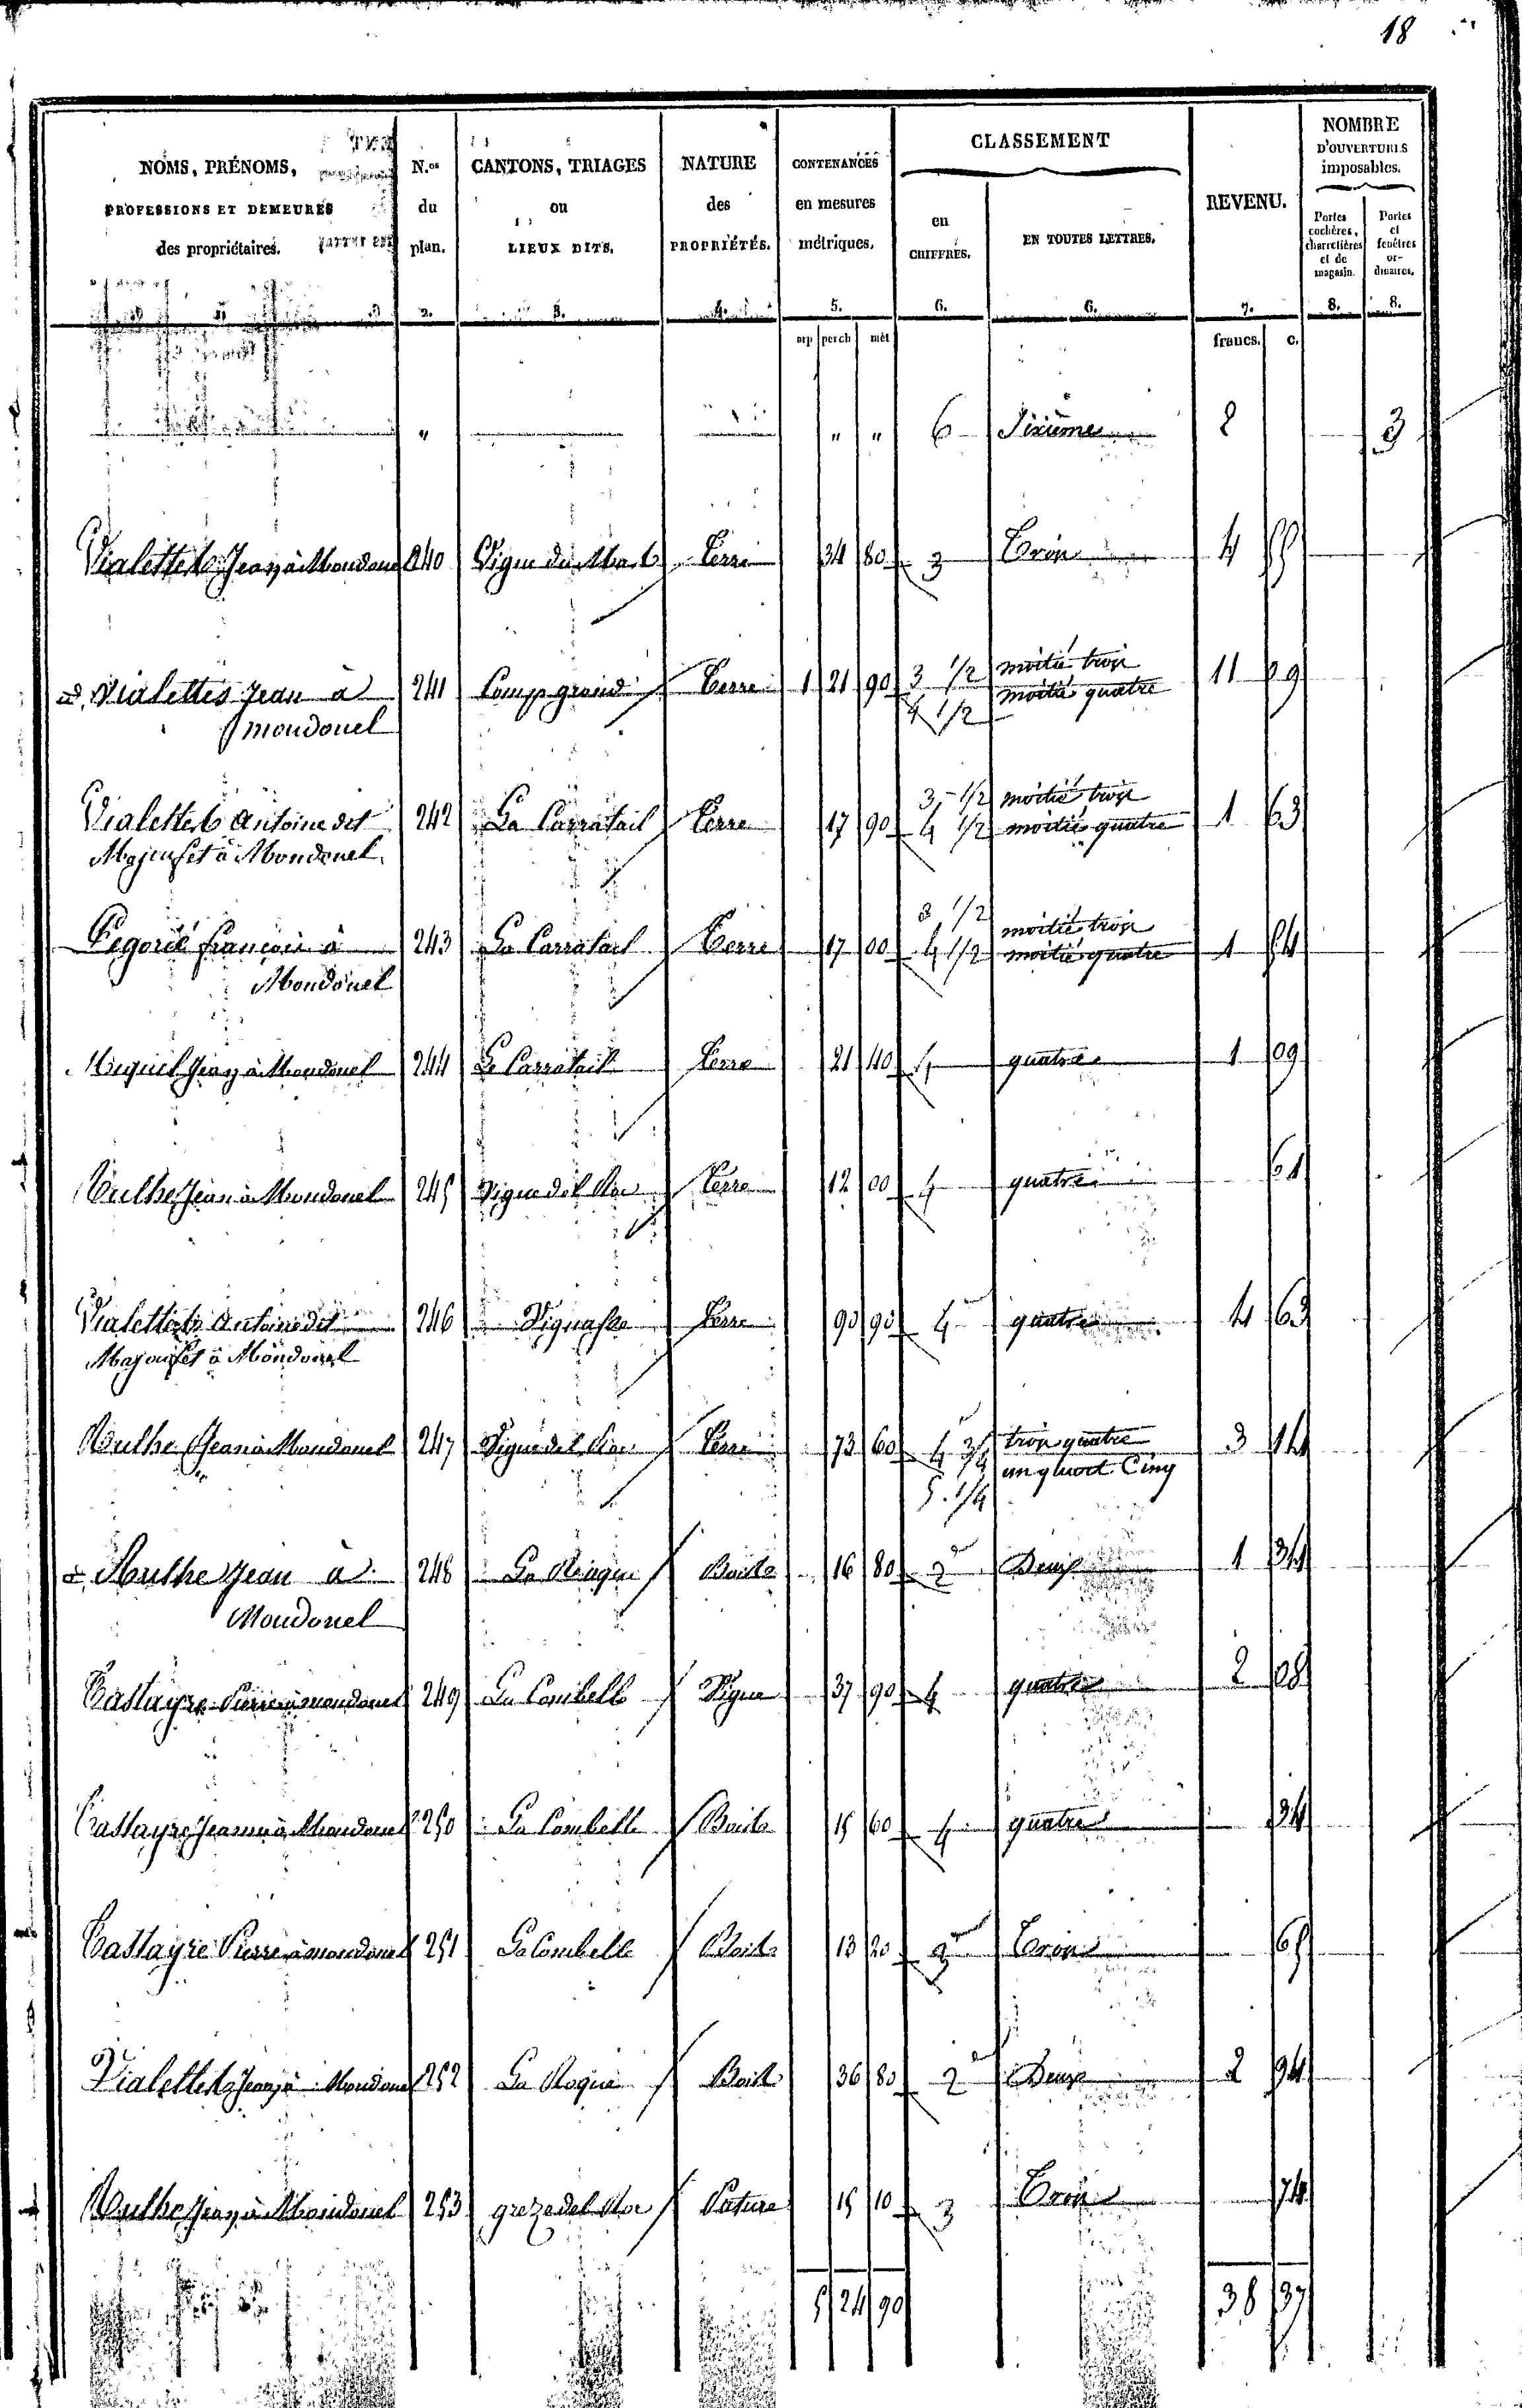 18
NOMS, PRÉNOMS, PROFESSIONS ET DEMEURES des propriétaires. N.os du plan. CANTONS, TRIAGES ou LIEUX DITS. NATURE des PROPRIÉTÉS. CONTENANCES en mesures métriques. CLASSEMENT en CHIFFRES. EN TOUTES LETTRES. REVENU. NOMBRE D'OUVERTURES imposables. Portes cochères, charretières et de magasin. Portes et fenêtres ordinaires.
2. 3. 4. 5. 6. 6. 7. 8. 8.
arp perch mèt francs. c.
" " " 6 Sixième 2 3
Vialettes Jean à Mondonel 240 Vigne du Terre 34 80 3 Trois 4 55
Vialettes Jean à 241 Camp grand Terre 1 21 90 3 1/2 moitié trois 11 09
mondonel 4 1/2 moitié quatre
Vialettes Antoine dit 242 La Carratail Terre 17 90 3 1/2 moitié trois 1 63
Majouset à Mondonel 4 1/2 moitié quatre
Pegorié françois à 243 La Carratail Terre 17 00 3 1/2 moitié trois 1 54
Mondonel 4 1/2 moitié quatre
Miquel Jean à Mondonel 244 La Carratail Terre 21 40 4 quatre 1 09
Jean à Mondonel 245 Vigne del Roc Terre 12 00 4 quatre 61
Vialettes Antoine dit 246 Vignasse Terre 90 90 4 quatre 4 63
Majouset à Mondonel
Jean à Mondonel 247 Vigne del Roc Terre 73 60 4 3/4 trois quatre 3 14
5. 1/4 un quart Cinq
Jean à 248 La Bois 16 80 2 Deux 1 34
Mondonel
Castayre Pierre à mondonel 249 La Combelle Vigne 37 90 4 quatre 2 08
Castayre Jeanne à Mondonel 250 La Combelle Bois 15 60 4 quatre 34
Castayre Pierre à mondonel 251 La Combelle Bois 13 20 3 Trois 65
Vialettes Jean à Mondonel 252 La Roque Bois 36 80 2 Deux 2 94
Jean à Mondonel 253 greze del Roc Pature 15 10 3 Trois 74
5 24 90 38 37